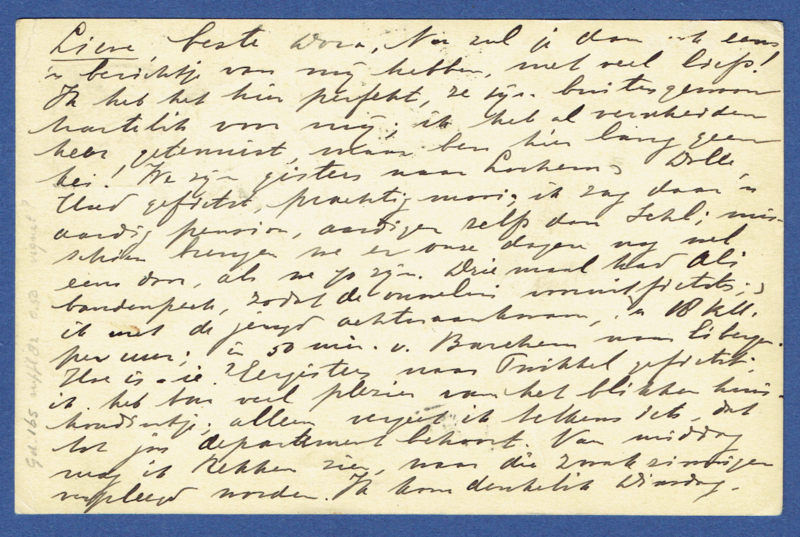 Lieve, beste Dora, Nu zul je dan ook eens
'n berichtje van mij hebben, met veel liefs!
Ik heb het hier perfekt, ze zijn buitengewoon
hartelik voor mij; ik heb al verscheiden
keer getennist, maar ben hier lang geen
kei! We zijn gisteren naar Lochem, Dolle
Hoed gefietst, prachtig mooi; ik zag daar 'n
aardig pension, aardiger zelfs dan mis-
schien brengen we er onze dagen nog wel
eens door, als we zijn. Drie maal had Ali
bandenpech, zodat de vooruitfietste;
ik met de jeugd achteraankwam, 18 K.M.
per uur; in 50 min. v. Barchem naar Eibergen.
Hoe is ie? Eergisteren naar Twikkel gefietst;
ik heb veel plezier van het blikken huis-
houdintje, alleen vergeet ik telkens iets, dat
tot jou departement behoort. Van middag
mag ik Rekken zien, waar die zwakzinnigen
verpleegd worden. Ik kom denkelik Dinsdag.
Gd. 165